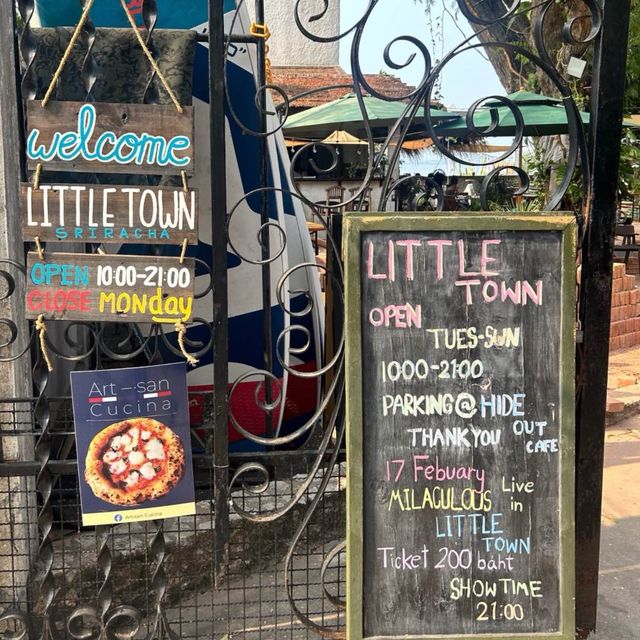 welcome
LITTLE TOWN
SRIRACHA
OPEN 10:00-21:00
CLOSE MONday
Art-san
Cucina
Artisan Cucina
LITTLE
TOWN
OPEN
TUES-SUN
10:00-21:00
PARKING@HIDE
OUT
THANKYOU CAFE
17 Febuary
MILACULOUS Live
in
LITTLE
TOWN
Ticket 200 baht
SHOWTIME
21:00